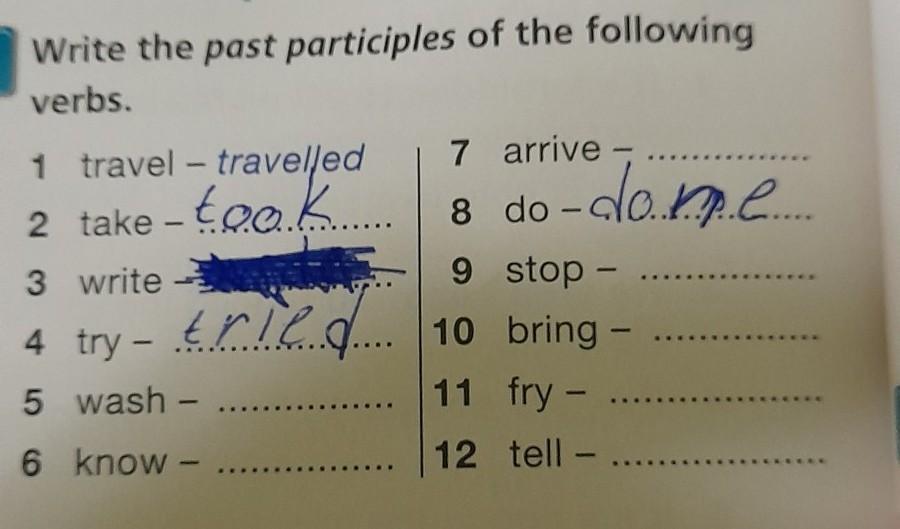 Write the past participles of the following
verbs.
1 travel – travelled
2 take – took
3 write –
4 try – tried
5 wash – ................
6 know – ................
7 arrive – ................
8 do – done
9 stop – ................
10 bring – ................
11 fry – ................
12 tell – ................